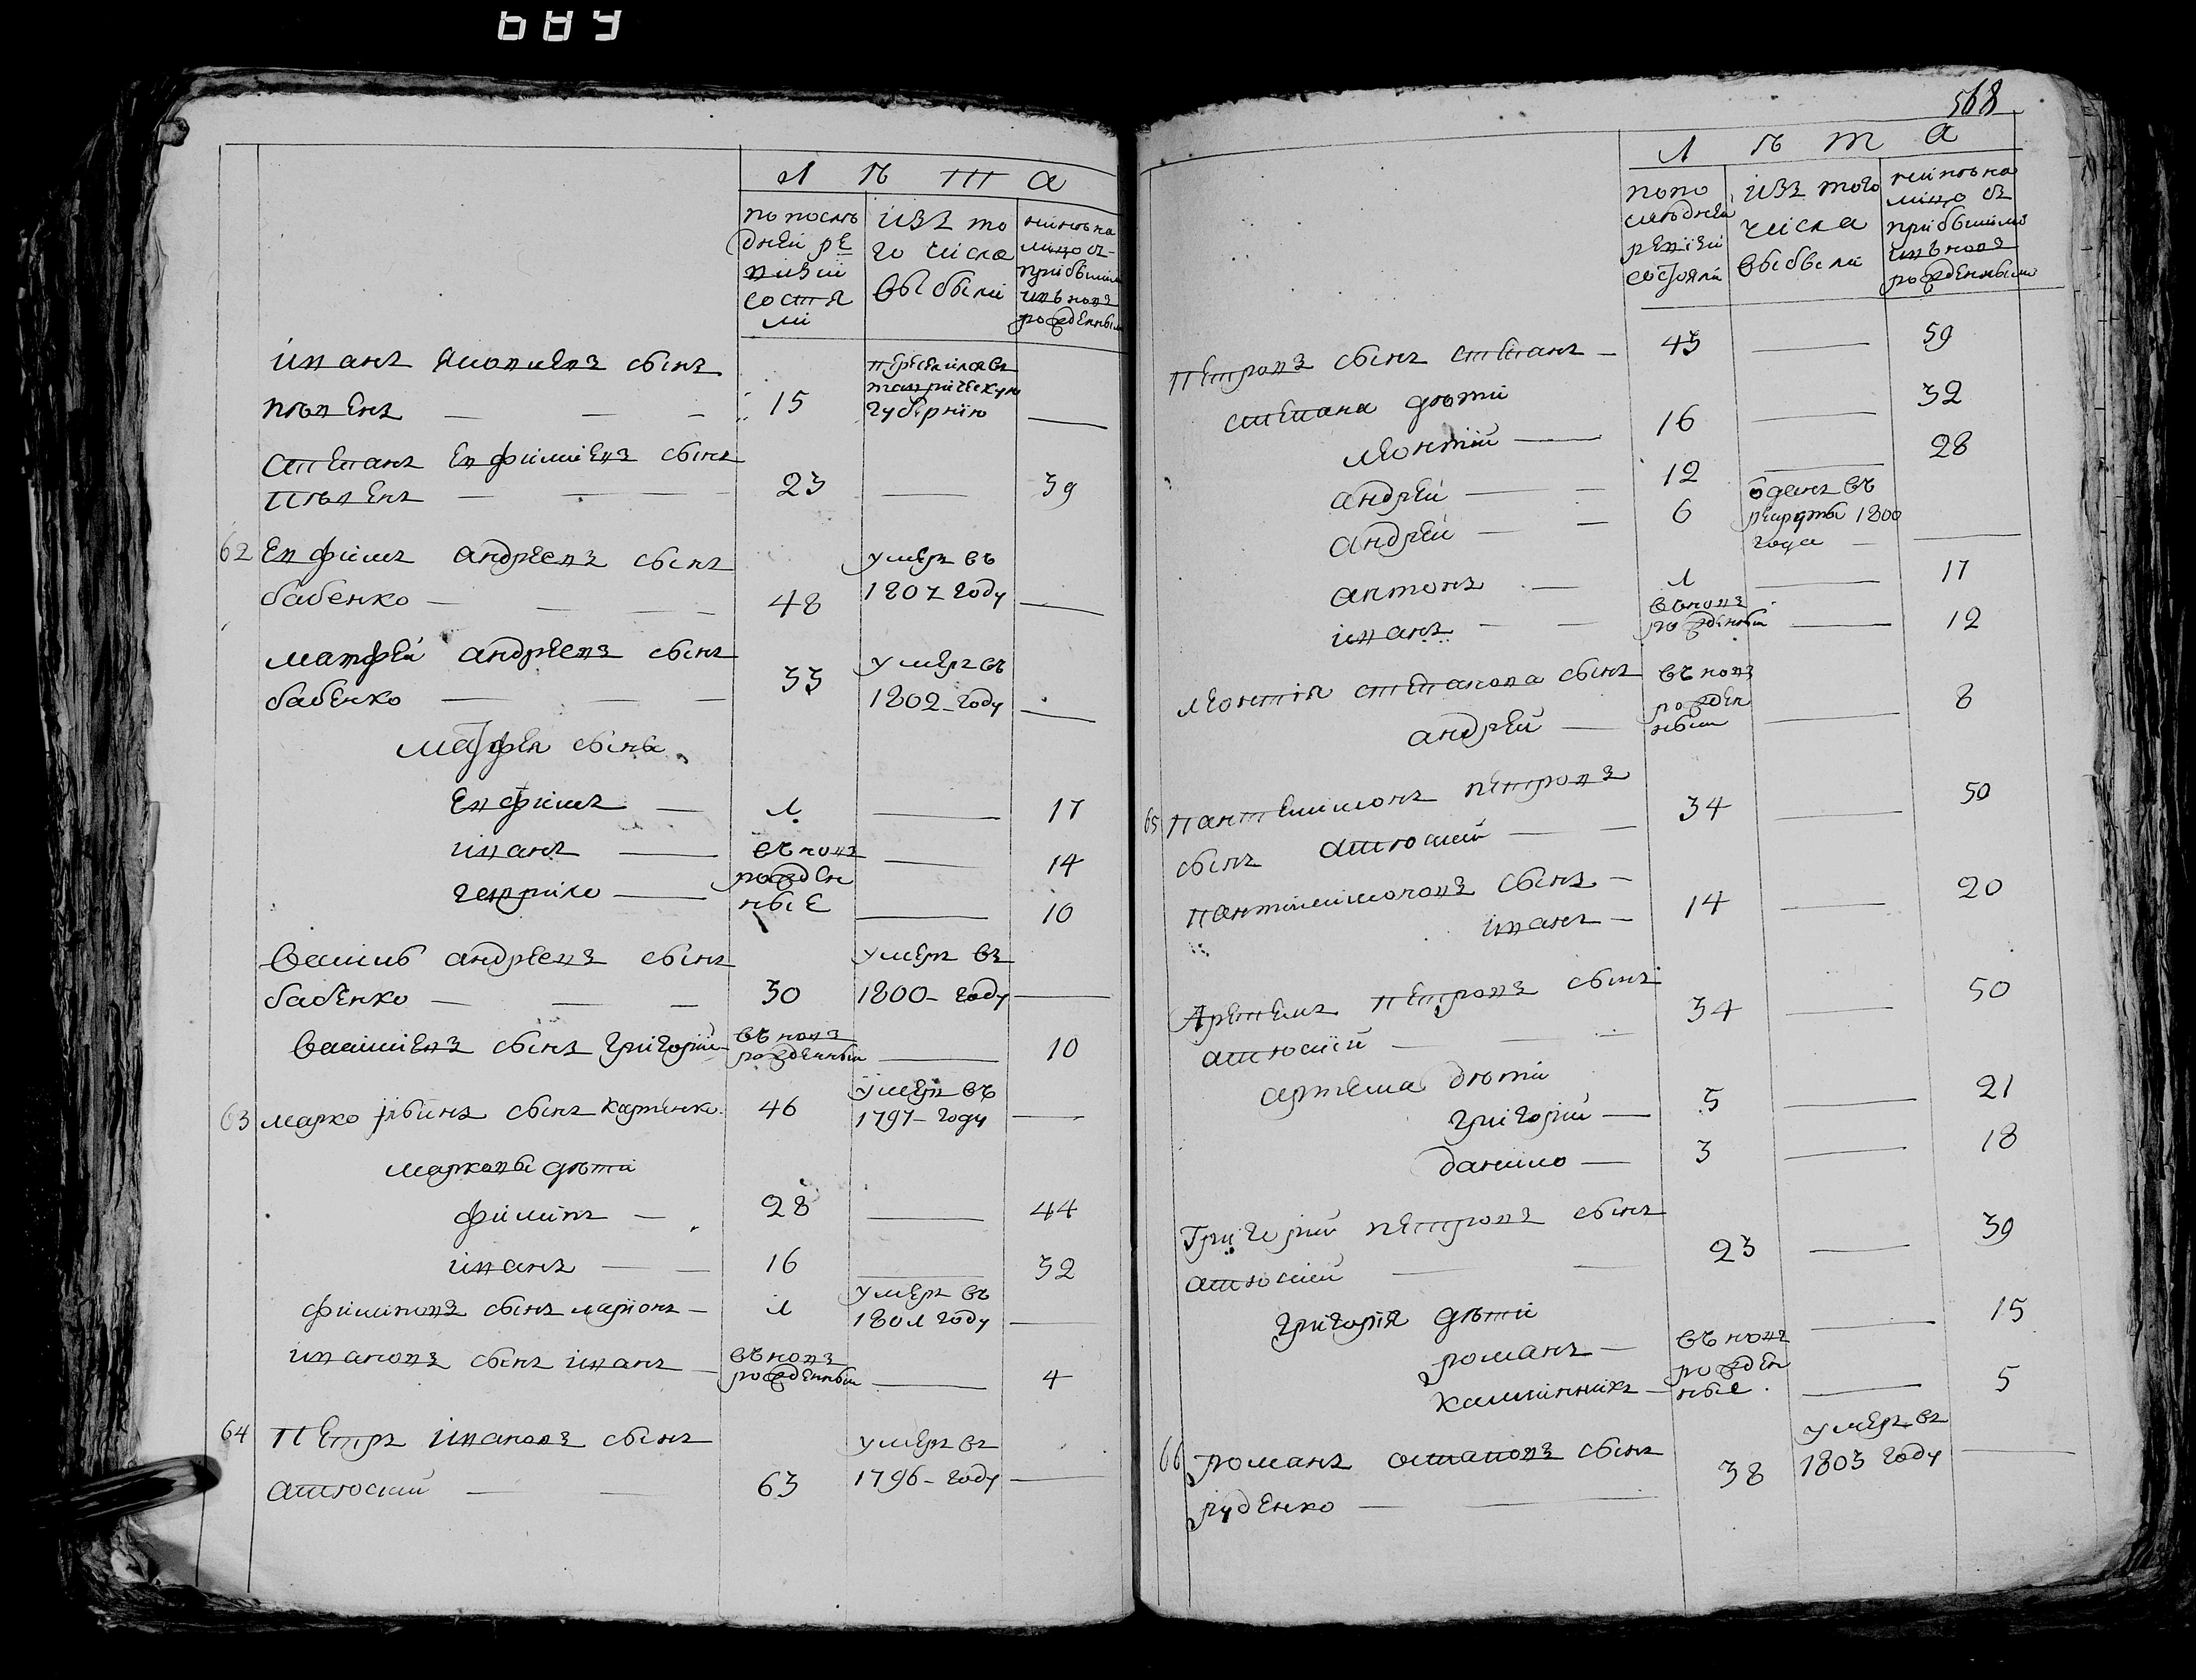 689
Л Ѣ Т А
по послѣ
дней ре
визіи
состоя
ли
изъ то
го числа
выбыли
нынѣ на
лицо съ
прибылыми
и вновь
рожденными
иванъ яковлевъ сынъ
15
переселился въ
таврическую
губернію
степанъ евфимиевъ сынъ
23 39
62 евфимъ андреевъ сынъ
бабенко
48
умеръ въ
1807 году
матфей андреевъ сынъ
бабенко
33
умеръ въ
1802 году
матфея сыны
евфимъ 1 17
иванъ
вновь
рожден
ные
14
гаврило 10
василь андреевъ сынъ
бабенко 30
умеръ въ
1800 году
васильевъ сынъ григорій
вновь
рожденный
10
63 марко
46
умеръ въ
1797 году
марковы дѣти
филипъ 28 44
иванъ 16 32
филиповъ сынъ ларіонъ 1
умеръ въ
1801 году
ивановъ сынъ иванъ
вновь
рожденный
4
64 петръ ивановъ сынъ
63
умеръ въ
1796 году
568
Л Ѣ Т А
по по
слѣдней
ревизіи
состояли
изъ того
числа
выбыли
нынѣ на
лицо съ
прибылыми
и вновь
рожденными
петровъ сынъ степанъ 43 59
степана дѣти
леонтій 16 32
андрей 12 28
андрей 6
отданъ въ
рекруты 1800
года
антонъ 1 17
иванъ
вновь
рожденный
12
леонтія степанова сынъ
андрей
вновь
рожден
ный
8
65 пантелимонъ петровъ
сынъ
34 50
пантилимоновъ сынъ
иванъ 14 20
Артемъ петровъ сынъ
34 50
артема дѣти
григорій 5 21
данило 3 18
Григорій петровъ сынъ
23 39
григорія дѣти
романъ
вновь
рожден
ные
15
калинникъ 5
66 романъ остаповъ сынъ
руденко
38
умеръ въ
1803 году